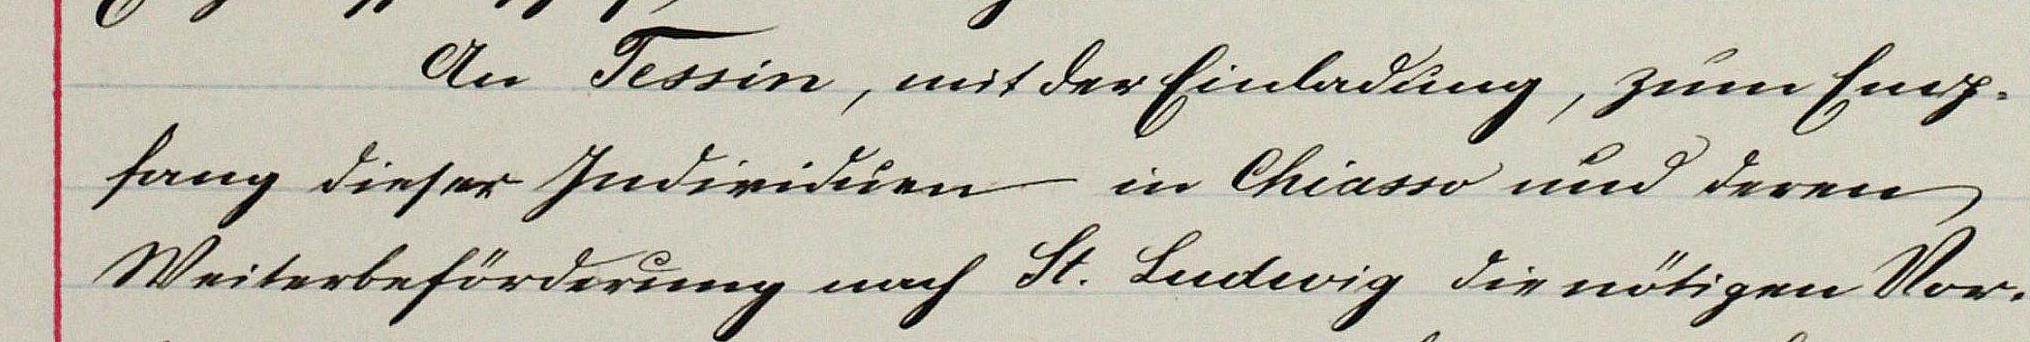 An Tessin, mit der Einladung, zum Emp-
fang dieser Individuen in Chiasso und deren
Weiterbeförderung nach St. Ludwig die nötigen Vor-